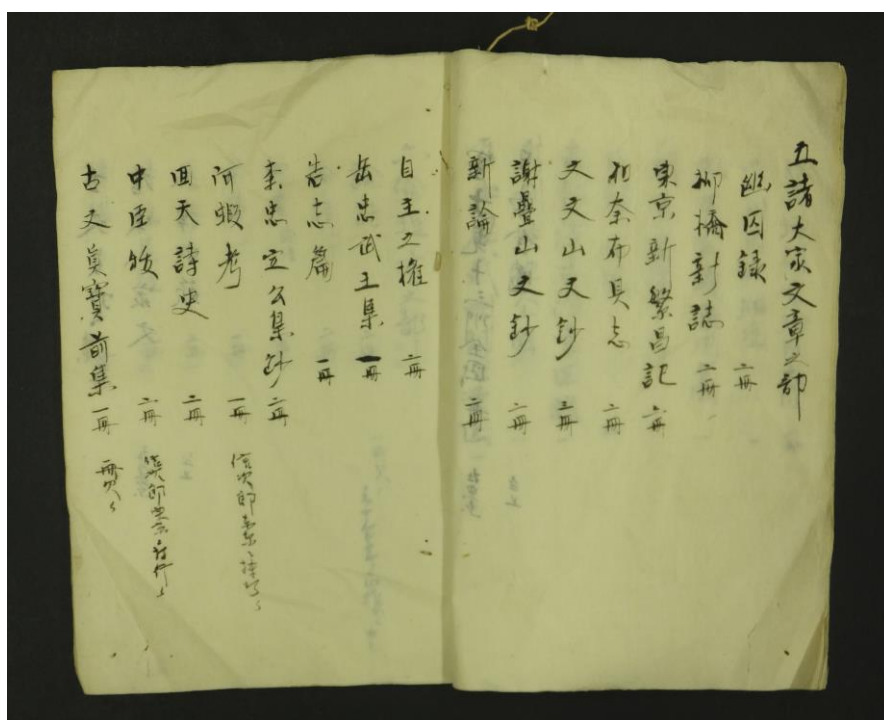 五諸大家文章之部
幽囚録 一冊
柳橋新誌 二冊
東京新繁昌記 六冊
和奈布具志 一冊
文文山文鈔 三冊
謝疊山文鈔 一冊
新論 二冊
自主之権 一冊
岳忠武王集 一冊
告志篇 一冊
李忠定公集鈔 二冊
河蝦考 一冊
回天詩史 二冊
中臣祓 一冊
古文真寶前集 一冊